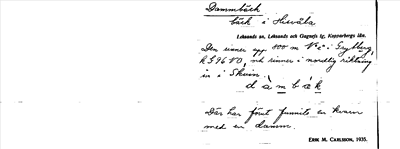 Dammbäck
bäck i Hisvåla
Leksands sn, Leksands och Gagnefs tg, Kopparbergs län.
Den rinner upp 800 m N i Grytberg,
och rinner i nordlig riktning
in i Skuin.
d a m b ä k
Där har förut funnits en kvarn
med en damm.
ERIK M. CARLSSON, 1935.